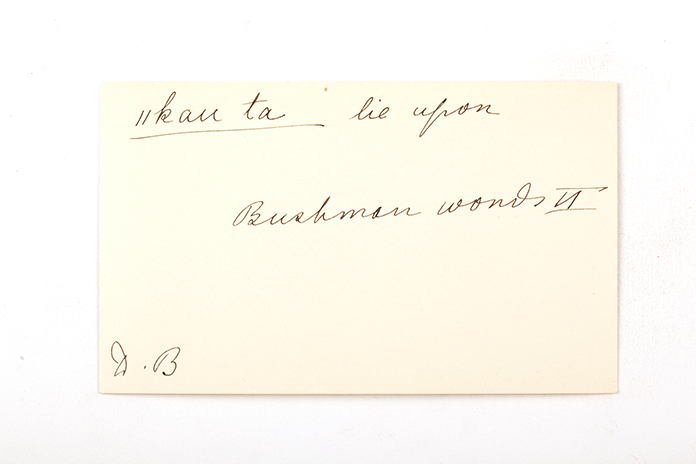 ǁkau ta lie upon
Bushman words VI
D. B